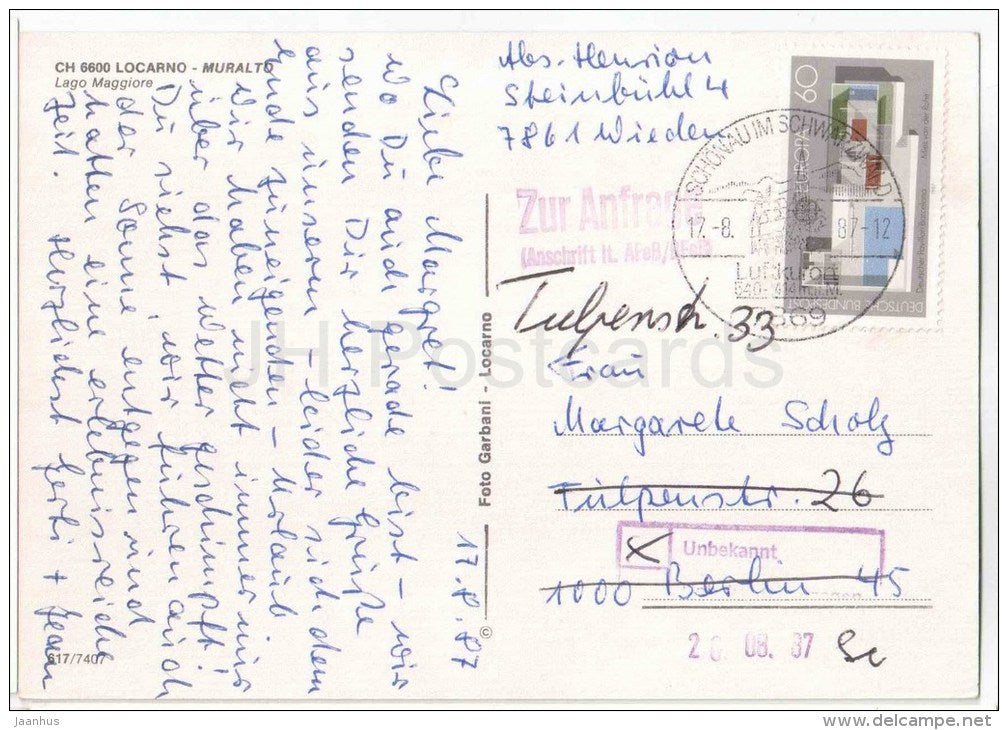 CH 6600 LOCARNO - MURALTO
Lago Maggiore
Liebe Margret!
Wo Du auch gerade bist - wir
senden Dir herzliche Grüße
aus unserem - leider sich dem
Ende zuneigenden - Urlaub.
Wir haben nicht immer nur
über das Wetter geschimpft!
Du siehst, wir fuhren auch
der Sonne entgegen und
hatten eine erlebnisreiche
Zeit. Herzlichst Gerti + Jean
17.8.87
617/7407
© Foto Garbani - Locarno
Abs. Hension
Steinbühl 4
7861 Wieden
60
EUROPA
DEUTSCHE BUNDESPOST
SCHÖNAU IM SCHWARZWALD
17.-8. 87-12
Luftkurort
Zur Anfrage
(Anschrift lt. AFeB/BFeB)
Tulpenstr. 33
Frau
Margarete Scholz
Tulpenstr. 26
Unbekannt
1000 Berlin 45
08. 87
JH Postcards
jaanhus
www.delcampe.net